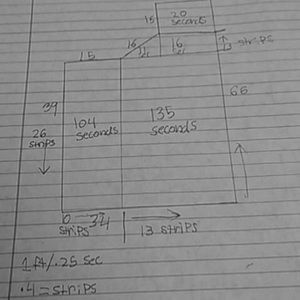 20
seconds
15
16
16
13 strips
15
39
65
104
seconds
135
seconds
26
strips
0
strips
34
13 strips
1 ft/.25 sec
.4 = strips